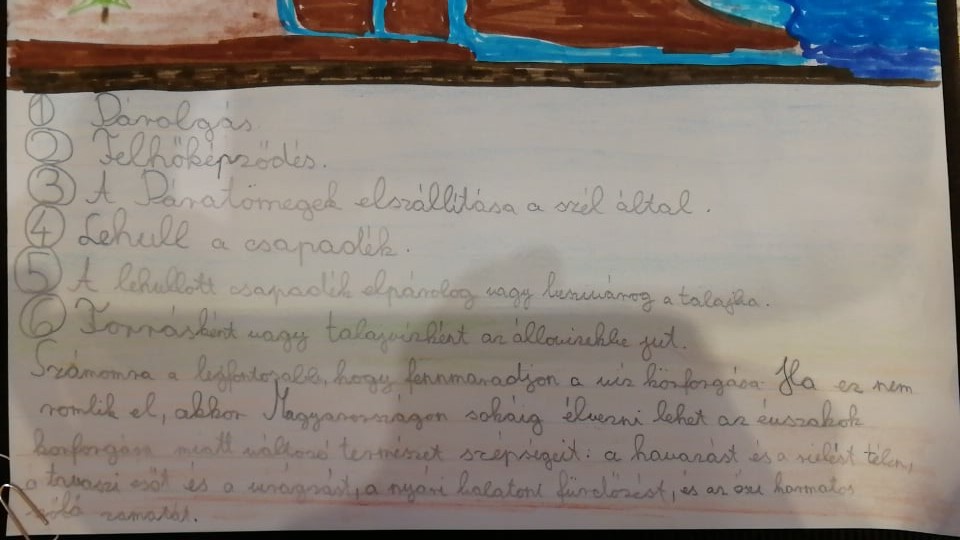 ① Párolgás
② Felhőképződés.
③ A Páratömegek elszállítása a szél által.
④ Lehull a csapadék.
⑤ A lehullott csapadék elpárolog vagy beszivárog a talajba.
⑥ Forrásként vagy talajvízként az állóvizekbe jut.
Számomra a legfontosabb, hogy fennmaradjon a víz körforgása. Ha ez nem
romlik el, akkor Magyarországon sokáig élvezni lehet az évszakok
körforgása miatt változó természet szépségeit: a havazást és a síelést télen,
a tavaszi esőt és a virágzást, a nyári balatoni fürdőzést, és az őszi harmatos
szőlő zamatát.